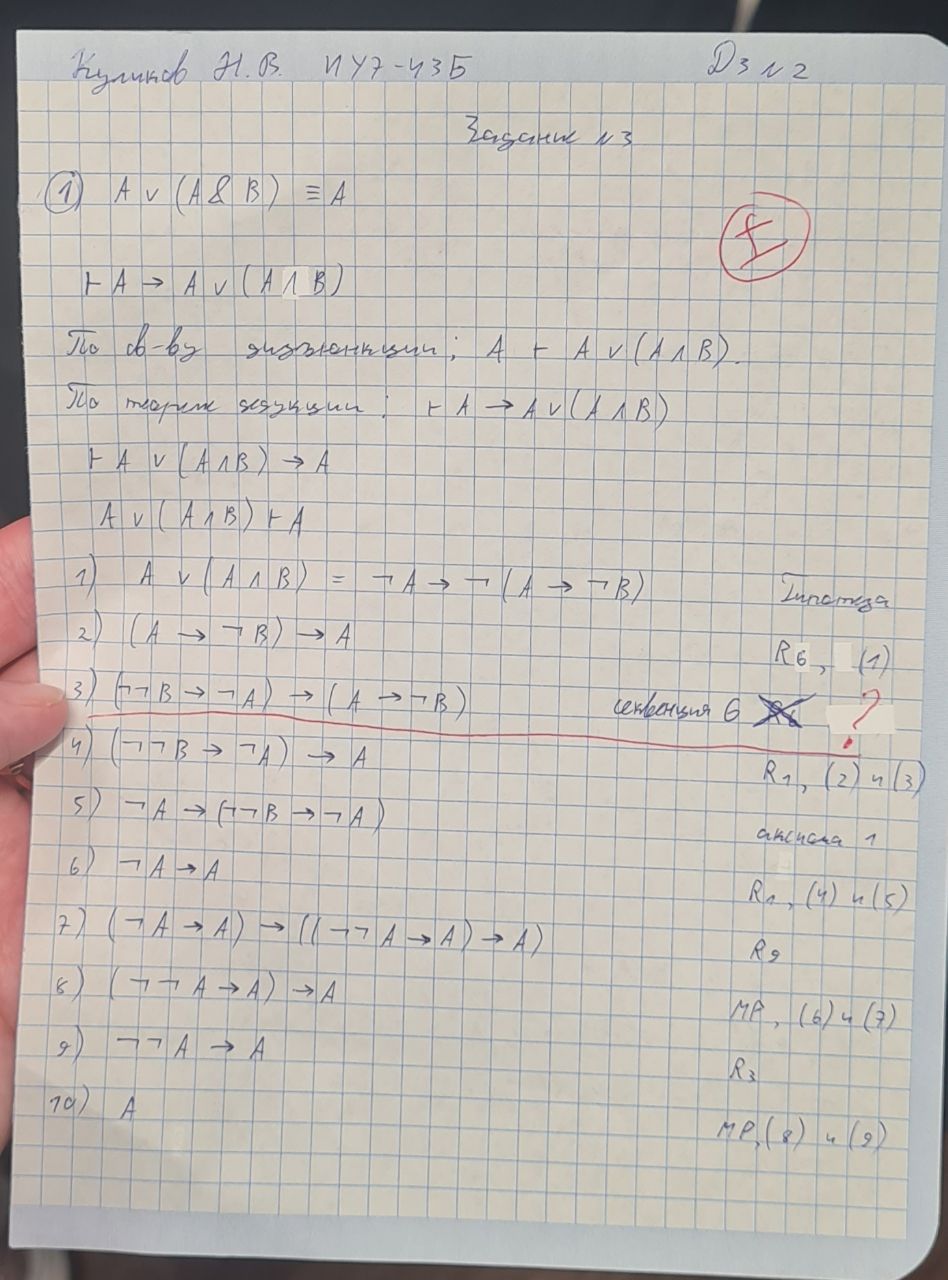 Куликов Н.В. ИУ7-43Б ДЗ №2
Задание №3
1) A ∨ (A & B) ≡ A
±
⊢ A → A ∨ (A ∧ B)
По св-ву дизъюнкции: A ⊢ A ∨ (A ∧ B).
По теореме дедукции: ⊢ A → A ∨ (A ∧ B)
⊢ A ∨ (A ∧ B) → A
A ∨ (A ∧ B) ⊢ A
1) A ∨ (A ∧ B) = ¬A → ¬(A → ¬B) Гипотеза
2) (A → ¬B) → A R6, (1)
3) (¬¬B → ¬A) → (A → ¬B) секвенция 6 ?
4) (¬¬B → ¬A) → A R1, (2) и (3)
5) ¬A → (¬¬B → ¬A) аксиома 1
6) ¬A → A R1, (4) и (5)
7) (¬A → A) → ((¬¬A → A) → A) R9
8) (¬¬A → A) → A MP, (6) и (7)
9) ¬¬A → A R3
10) A MP, (8) и (9)